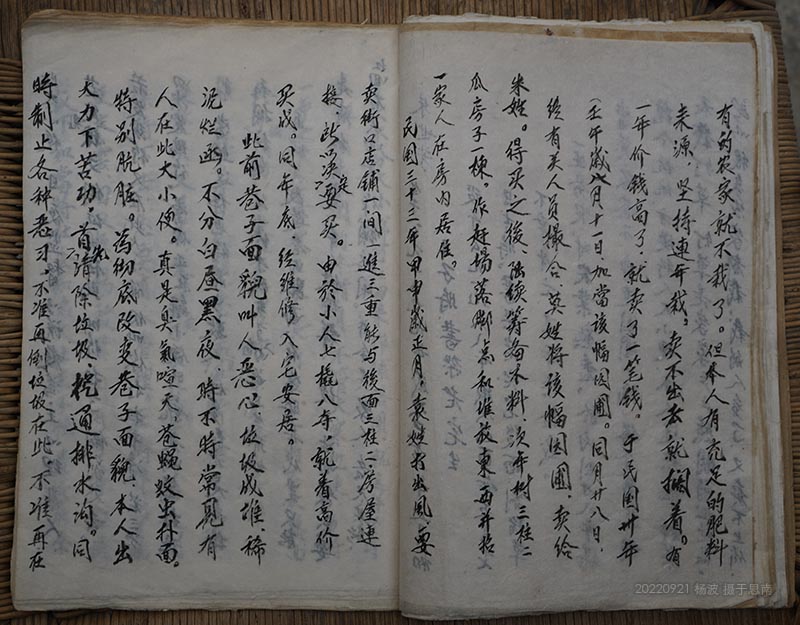 有的农家就不栽了。但本人有充足的肥料
来源、坚持連年栽。卖不出去就搁着。有
一年价钱高了、就卖了一笔钱。于民国卅年
(壬午歲八月十一日、加當該幅园圃。同月廿八日、
经有关人員撮合、莫姓将該幅园圃、卖给
朱姓。得买之後、陆续筹备木料、次年樹三柱二
瓜房子一棟。作赶場落脚点和堆放東西并招
一家人在房内居住。
民國三十三年甲申歲正月，袁姓打出風、要
卖街口店鋪一间一進三重能与後面三柱二房屋連
接、所以决定要买。由於小人七撬八夺，就着高价
买成。同年底、经维修入宅安居。
此前巷子面貌叫人恶心、垃圾成堆、稀
泥烂凼。不分白昼黑夜、時不時常見有
人在此大小便。真是臭氣喧天苍蝇蚊虫扑面。
特别肮脏。為彻底改变巷子面貌、本人出
大力下苦功，首先清除垃圾挖通排水沟。同
時制止各种恶习、不准再倒垃圾在此，不准再在
20220921 杨波 摄于思南